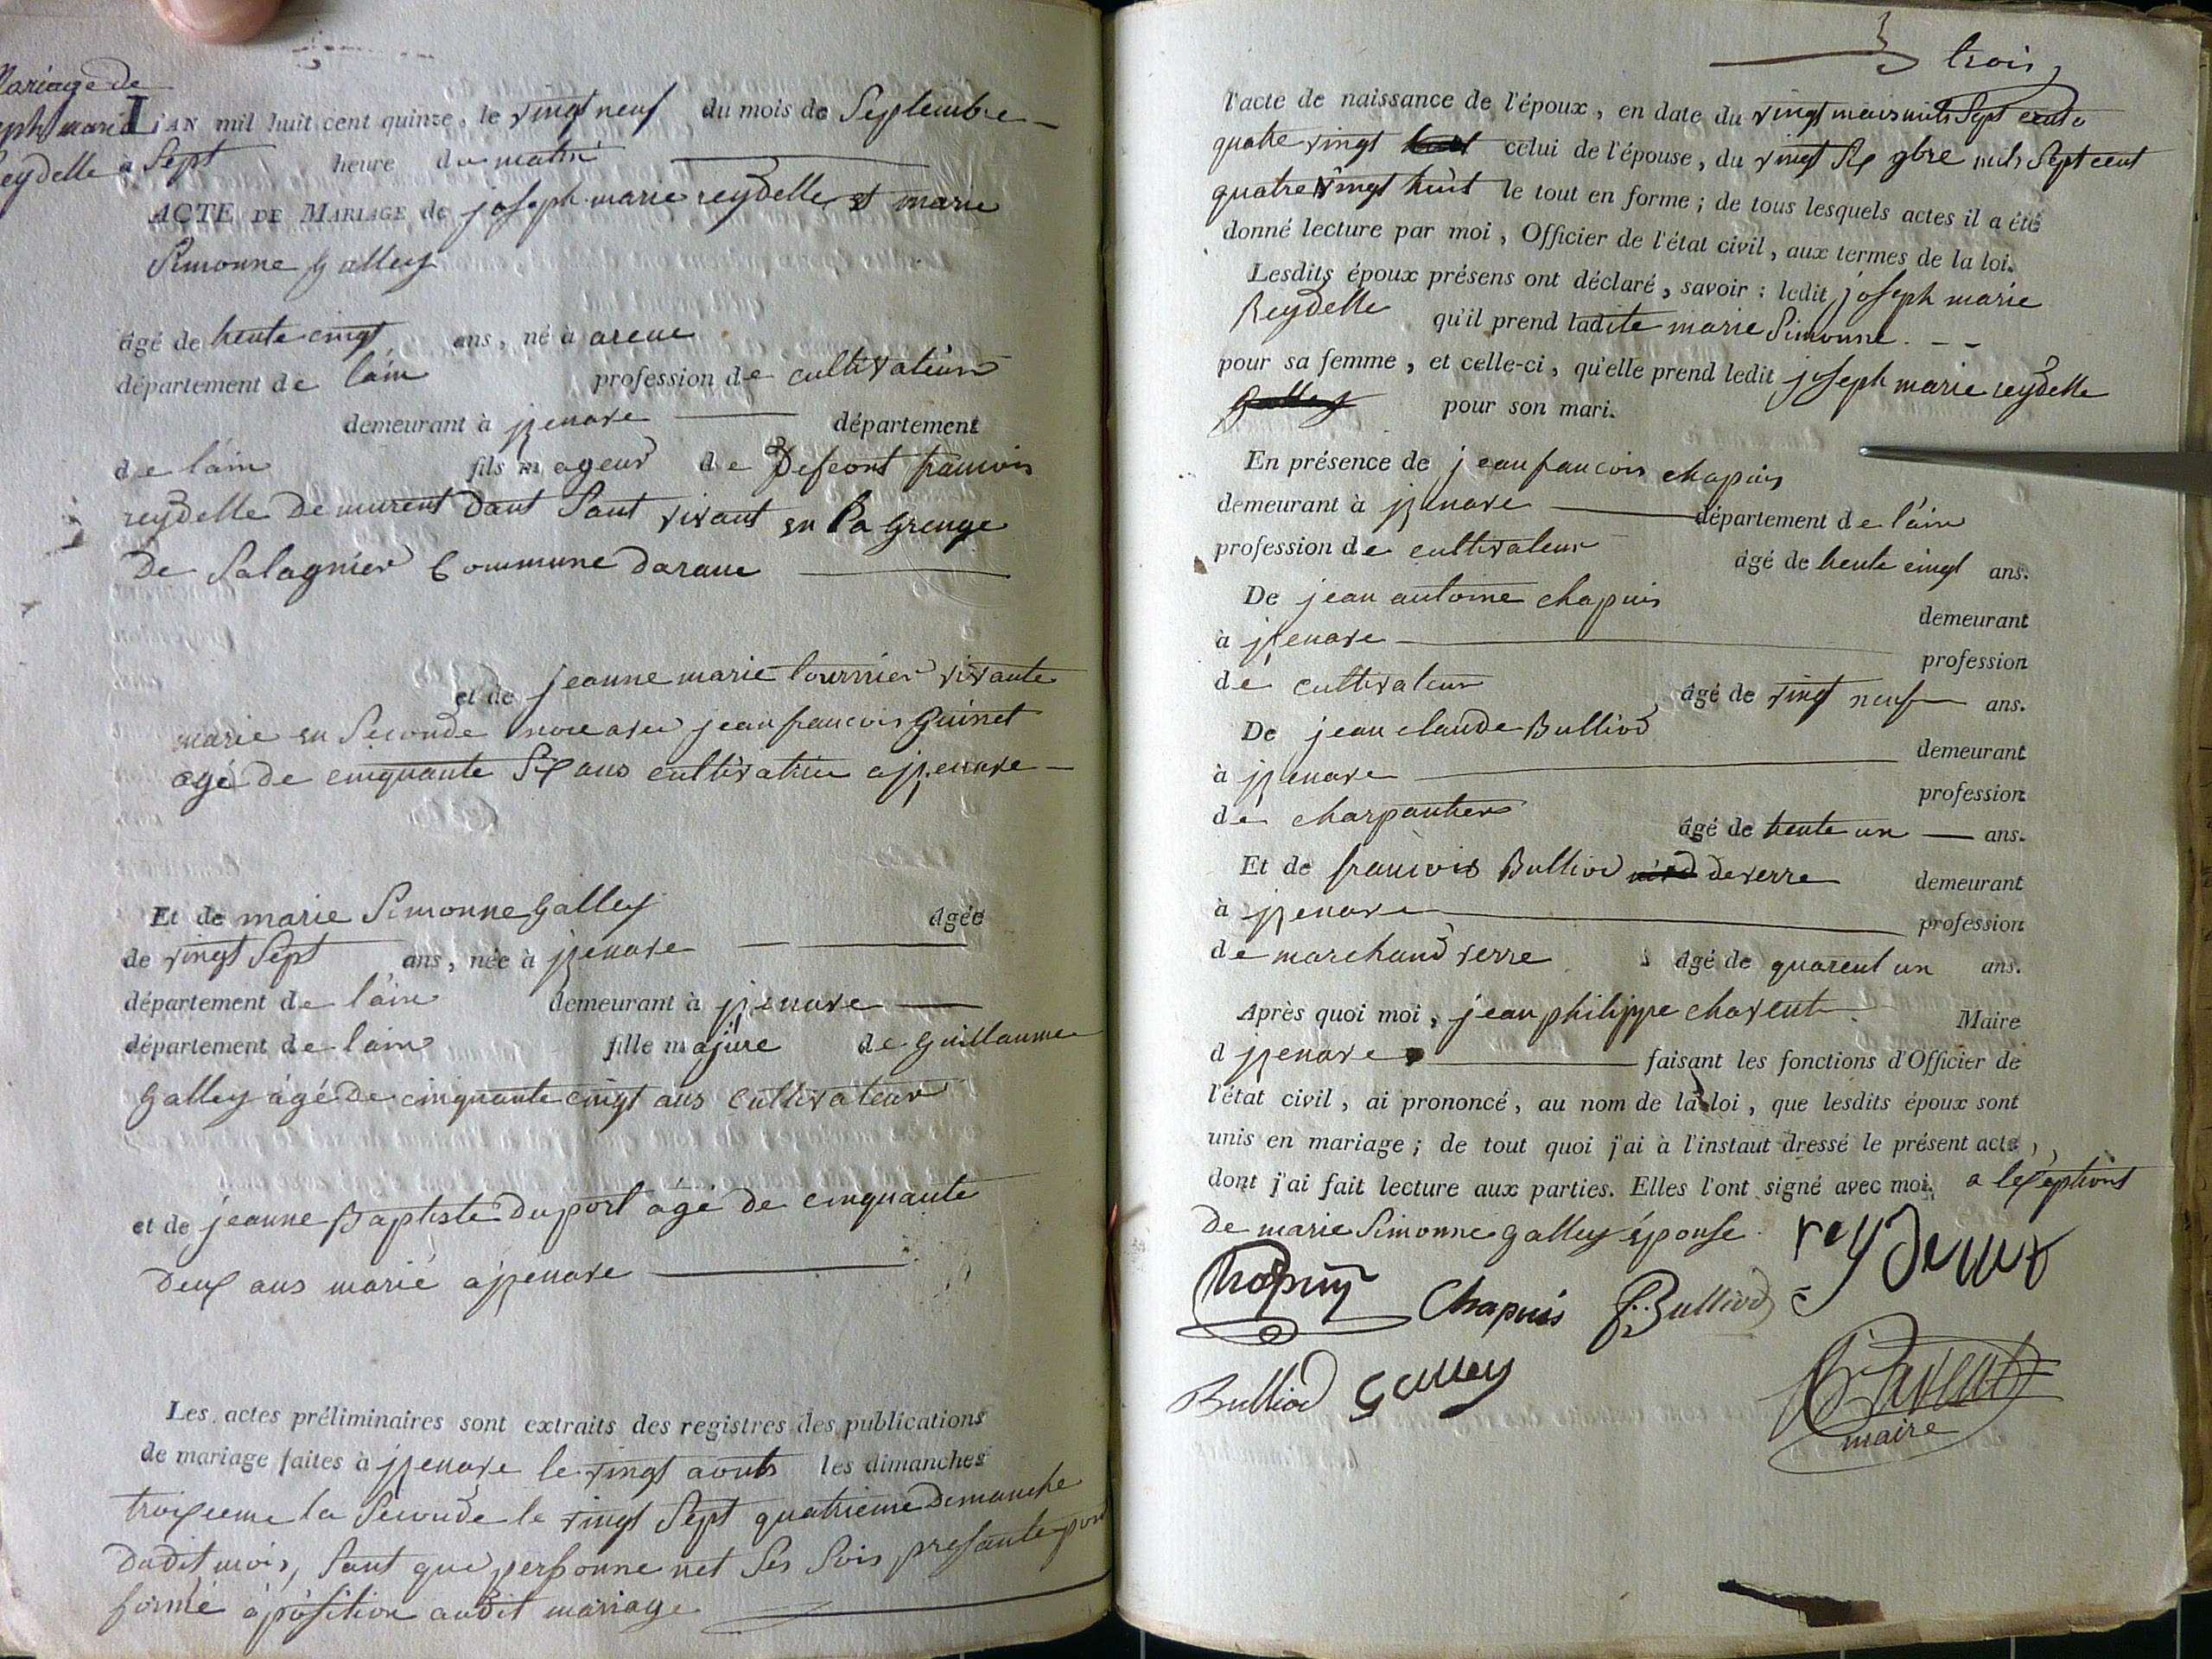 Mariage de
joseph marie
Reydelle
L'AN mil huit cent quinze, le vingt neuf du mois de Septembre
a Sept heure du matin
ACTE DE MARIAGE de joseph marie reydelle et marie
Simonne Galley
âgé de trente cinqt ans, né à araue
département de lain profession de cultivateur
demeurant à jzenave département
de lain fils majeur de Defeont francois
reydelle Demurent Dant Sant vivant en la Grenge
De Salagnier Commune Daraue
et de jeanne marie tournier vivante
marie en Seconde noce avec jean francois Guinet
agé de cinquante Six ans cultivatrice a jzenave
Et de marie Simonne Galley âgée
de vingt Sept ans, née à jzenave
département de lain demeurant à jzenave
département de lain fille majure de Guillaume
Galley agé De cinquante cinqt ans Cultivateur
et de jeanne Baptiste Duport agé de cinquante
Deux ans marié a jzenave
Les actes préliminaires sont extraits des registres des publications
de mariage faites à jzenave le vingt aouts les dimanches
troixieme la Seconde le vingt Sept quatrieme Dimanche
Dudit mois, Sant que personne net Ses Sois presante pour
formé aposition audit mariage
3 trois
l'acte de naissance de l'époux, en date du vingt mars mils Sept cents
quatre vingt celui de l'épouse, du vingt Six 9bre mils Sept cent
quatre vingt huit le tout en forme ; de tous lesquels actes il a été
donné lecture par moi, Officier de l'état civil, aux termes de la loi.
Lesdits époux présens ont déclaré, savoir : ledit joseph marie
Reydelle qu'il prend ladite marie Simonne
pour sa femme, et celle-ci, qu'elle prend ledit joseph marie reydelle
Galley pour son mari.
En présence de jean francois chapuis
demeurant à jzenave département de lain
profession de cultivateur âgé de trente cinqt ans.
De jean antoine chapuis demeurant
à jzenave profession
de cultivateur âgé de vingt neuf ans.
De jean claude Bulliod demeurant
à jzenave profession
de charpantier âgé de trente un ans.
Et de francois Bulliod deverre demeurant
à jzenave profession
de marchand verre âgé de quarent un ans.
Après quoi moi, jean philippe chavent Maire
d jzenave faisant les fonctions d'Officier de
l'état civil, ai prononcé, au nom de la loi, que lesdits époux sont
unis en mariage ; de tout quoi j'ai à l'instaut dressé le présent acte,
dont j'ai fait lecture aux parties. Elles l'ont signé avec moi. a lexeptions
De marie Simonne Galley épouse
reydellet
Chapuis Chapuis f. Bulliod
Bulliod Galley Chavent
maire